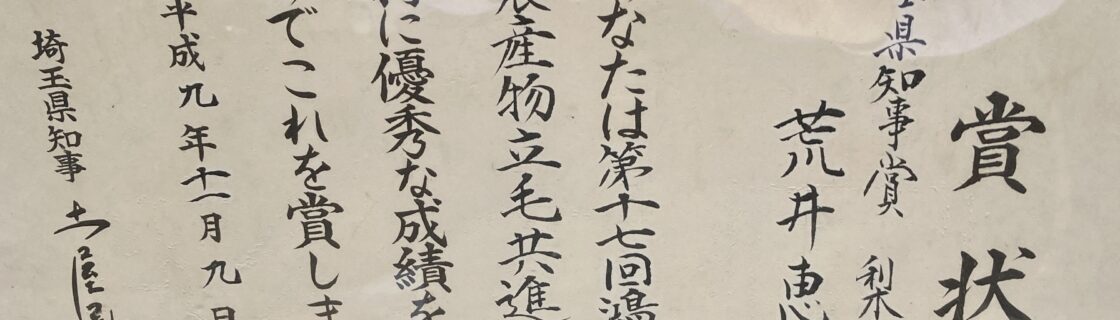 賞状
県知事賞
荒井恵
なたは第十七回鴻
産物立毛共進
に優秀な成績を
でこれを賞しま
平成九年十一月九日
埼玉県知事 土屋